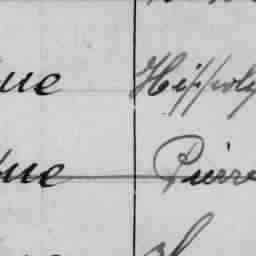 ue Hippoly
ue Pierre